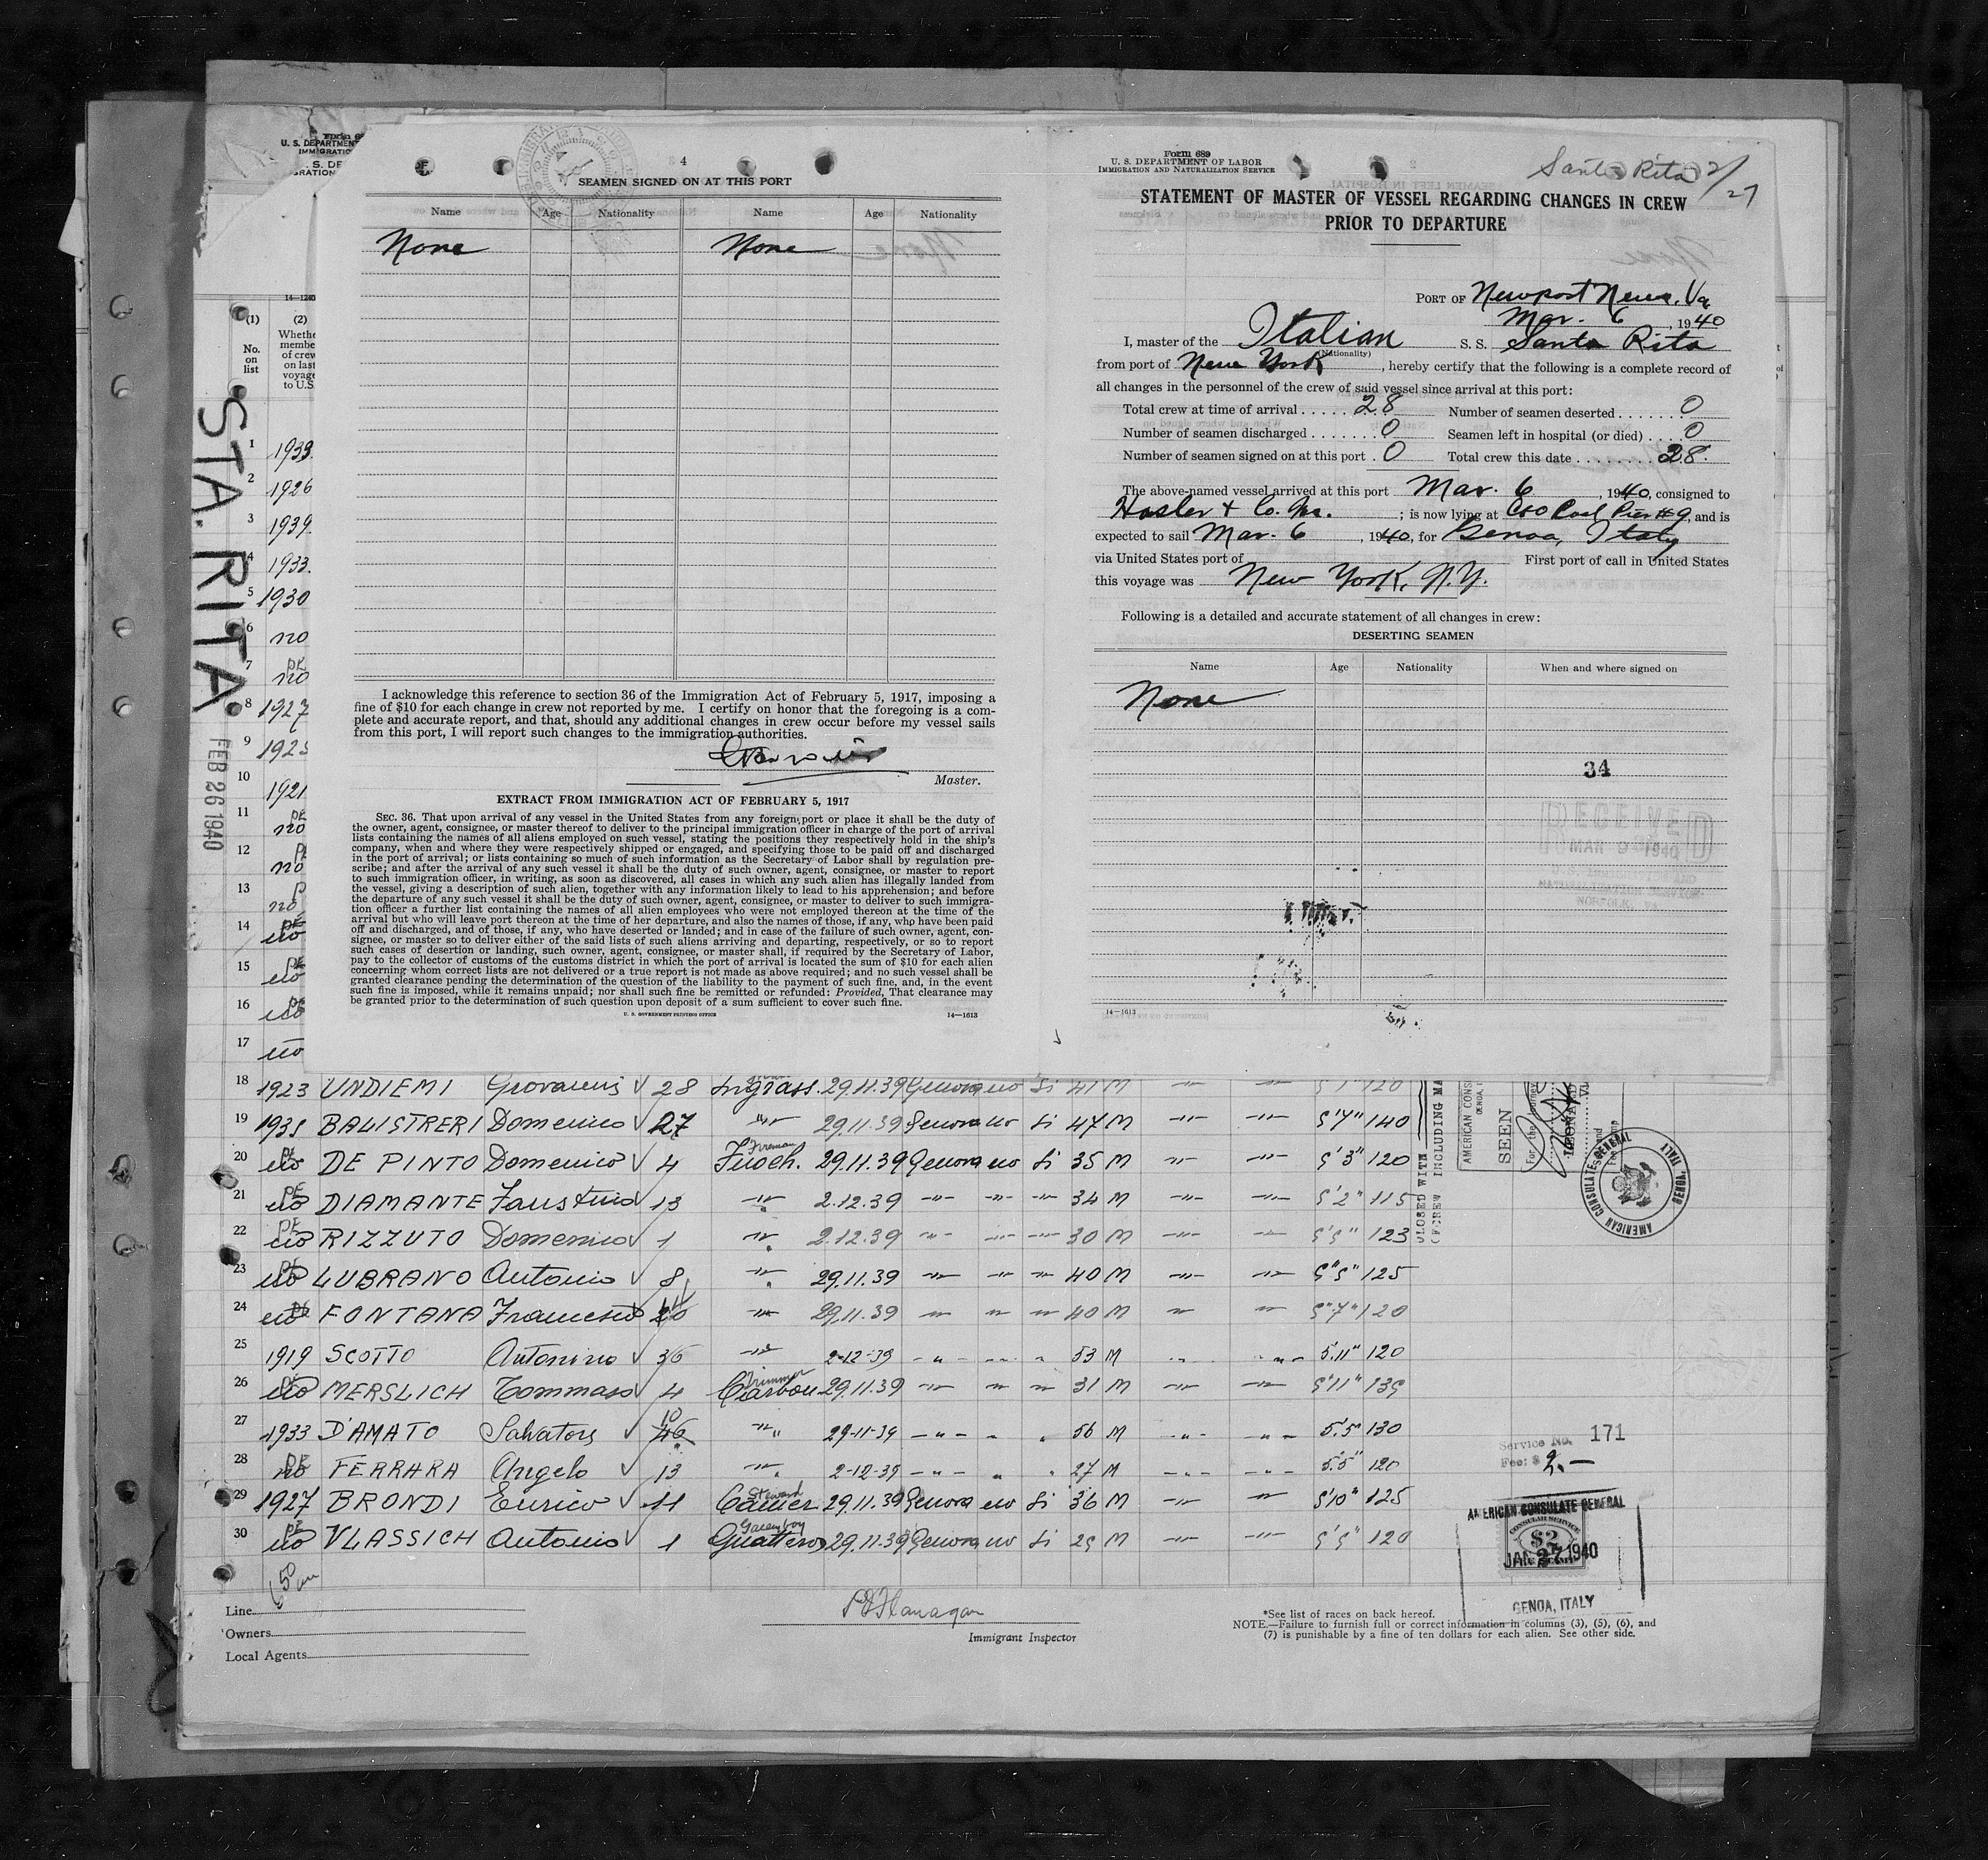 4
SEAMEN SIGNED ON AT THIS PORT
Name Age Nationality Name Age Nationality
None None
I acknowledge this reference to section 36 of the Immigration Act of February 5, 1917, imposing a
fine of $10 for each change in crew not reported by me. I certify on honor that the foregoing is a com-
plete and accurate report, and that, should any additional changes in crew occur before my vessel sails
from this port, I will report such changes to the immigration authorities.
Master.
EXTRACT FROM IMMIGRATION ACT OF FEBRUARY 5, 1917
SEC. 36. That upon arrival of any vessel in the United States from any foreign port or place it shall be the duty of
the owner, agent, consignee, or master thereof to deliver to the principal immigration officer in charge of the port of arrival
lists containing the names of all aliens employed on such vessel, stating the positions they respectively hold in the ship's
company, when and where they were respectively shipped or engaged, and specifying those to be paid off and discharged
in the port of arrival; or lists containing so much of such information as the Secretary of Labor shall by regulation pre-
scribe; and after the arrival of any such vessel it shall be the duty of such owner, agent, consignee, or master to report
to such immigration officer, in writing, as soon as discovered, all cases in which any such alien has illegally landed from
the vessel, giving a description of such alien, together with any information likely to lead to his apprehension; and before
the departure of any such vessel it shall be the duty of such owner, agent, consignee, or master to deliver to such immigra-
tion officer a further list containing the names of all alien employees who were not employed thereon at the time of the
arrival but who will leave port thereon at the time of her departure, and also the names of those, if any, who have been paid
off and discharged, and of those, if any, who have deserted or landed; and in case of the failure of such owner, agent, con-
signee, or master so to deliver either of the said lists of such aliens arriving and departing, respectively, or so to report
such cases of desertion or landing, such owner, agent, consignee, or master shall, if required by the Secretary of Labor,
pay to the collector of customs of the customs district in which the port of arrival is located the sum of $10 for each alien
concerning whom correct lists are not delivered or a true report is not made as above required; and no such vessel shall be
granted clearance pending the determination of the question of the liability to the payment of such fine, and, in the event
such fine is imposed, while it remains unpaid; nor shall such fine be remitted or refunded: Provided, That clearance may
be granted prior to the determination of such question upon deposit of a sum sufficient to cover such fine.
U. S. GOVERNMENT PRINTING OFFICE 14—1613
Form 689
U. S. DEPARTMENT OF LABOR
IMMIGRATION AND NATURALIZATION SERVICE
Santa Rita 2/27
STATEMENT OF MASTER OF VESSEL REGARDING CHANGES IN CREW
PRIOR TO DEPARTURE
PORT OF Newport News, Va
Mar. 6, 1940
I, master of the Italian S. S. Santa Rita
(Nationality)
from port of New York, hereby certify that the following is a complete record of
all changes in the personnel of the crew of said vessel since arrival at this port:
Total crew at time of arrival . . . . . 28 Number of seamen deserted . . . . . . . 0
Number of seamen discharged . . . . . . . 0 Seamen left in hospital (or died) . . . . 0
Number of seamen signed on at this port . 0 Total crew this date . . . . . . . . . 28.
The above-named vessel arrived at this port Mar. 6, 1940, consigned to
Hasler & Co. Inc. ; is now lying at C&O Coal Pier #9, and is
expected to sail Mar. 6, 1940, for Genoa, Italy
via United States port of First port of call in United States
this voyage was New York, N.Y.
Following is a detailed and accurate statement of all changes in crew:
DESERTING SEAMEN
Name Age Nationality When and where signed on
None
34
RECEIVED
MAR 9 1940
NORFOLK, VA.
14—1613
STA. RITA
FEB 26 1940
(1) (2)
No. on list
1 1939.
2 1926
3 1939.
4 1933.
5 1930
6 no
7 no
8 1927
9 1925
10 1921
11 no
12 no
13 no
14 no
15 no
16 no
17 no
18 1923 UNDIEMI Giovanni 28 Ingrass. 29.11.39 Genova no Si 41 M
19 1931 BALISTRERI Domenico 27 29.11.39 Genova no Si 47 M 5'7" 140
20 no DE PINTO Domenico 4 Fuoch. Fireman 29.11.39 Genova no Si 35 M 5'3" 120
21 no DIAMANTE Faustino 13 2.12.39 34 M 5'2" 115
22 no RIZZUTO Domenico 1 2.12.39 30 M 5'5" 123
23 no LUBRANO Antonio 8 29.11.39 40 M 5'5" 125
24 no FONTANA Francesco 29.11.39 40 M 5'7" 120
25 1919 SCOTTO Antonino 36 2-12-39 53 M 5.11" 120
26 no MERSLICH Tommaso 4 Carbon. Trimmer 29.11.39 31 M 5'11" 135
27 1933 D'AMATO Salvatore 10 29-11-39 56 M 5.5" 130
28 no FERRARA Angelo 13 2-12-39 27 M 5.5" 120
29 1927 BRONDI Enrico 11 Camer. Steward 29.11.39 Genova no Si 36 M 5'10" 125
30 no VLASSICH Antonio 1 29.11.39 Genova no Si 25 M 5'5" 120
Line
Owners
Local Agents
Immigrant Inspector
*See list of races on back hereof.
NOTE.—Failure to furnish full or correct information in columns (3), (5), (6), and
(7) is punishable by a fine of ten dollars for each alien. See other side.
SEEN
AMERICAN CONSULATE GENERAL
GENOA, ITALY
Service No. 171
Fee: $ 2.—
AMERICAN CONSULATE GENERAL
CONSULAR SERVICE
$2
JAN 27 1940
GENOA, ITALY